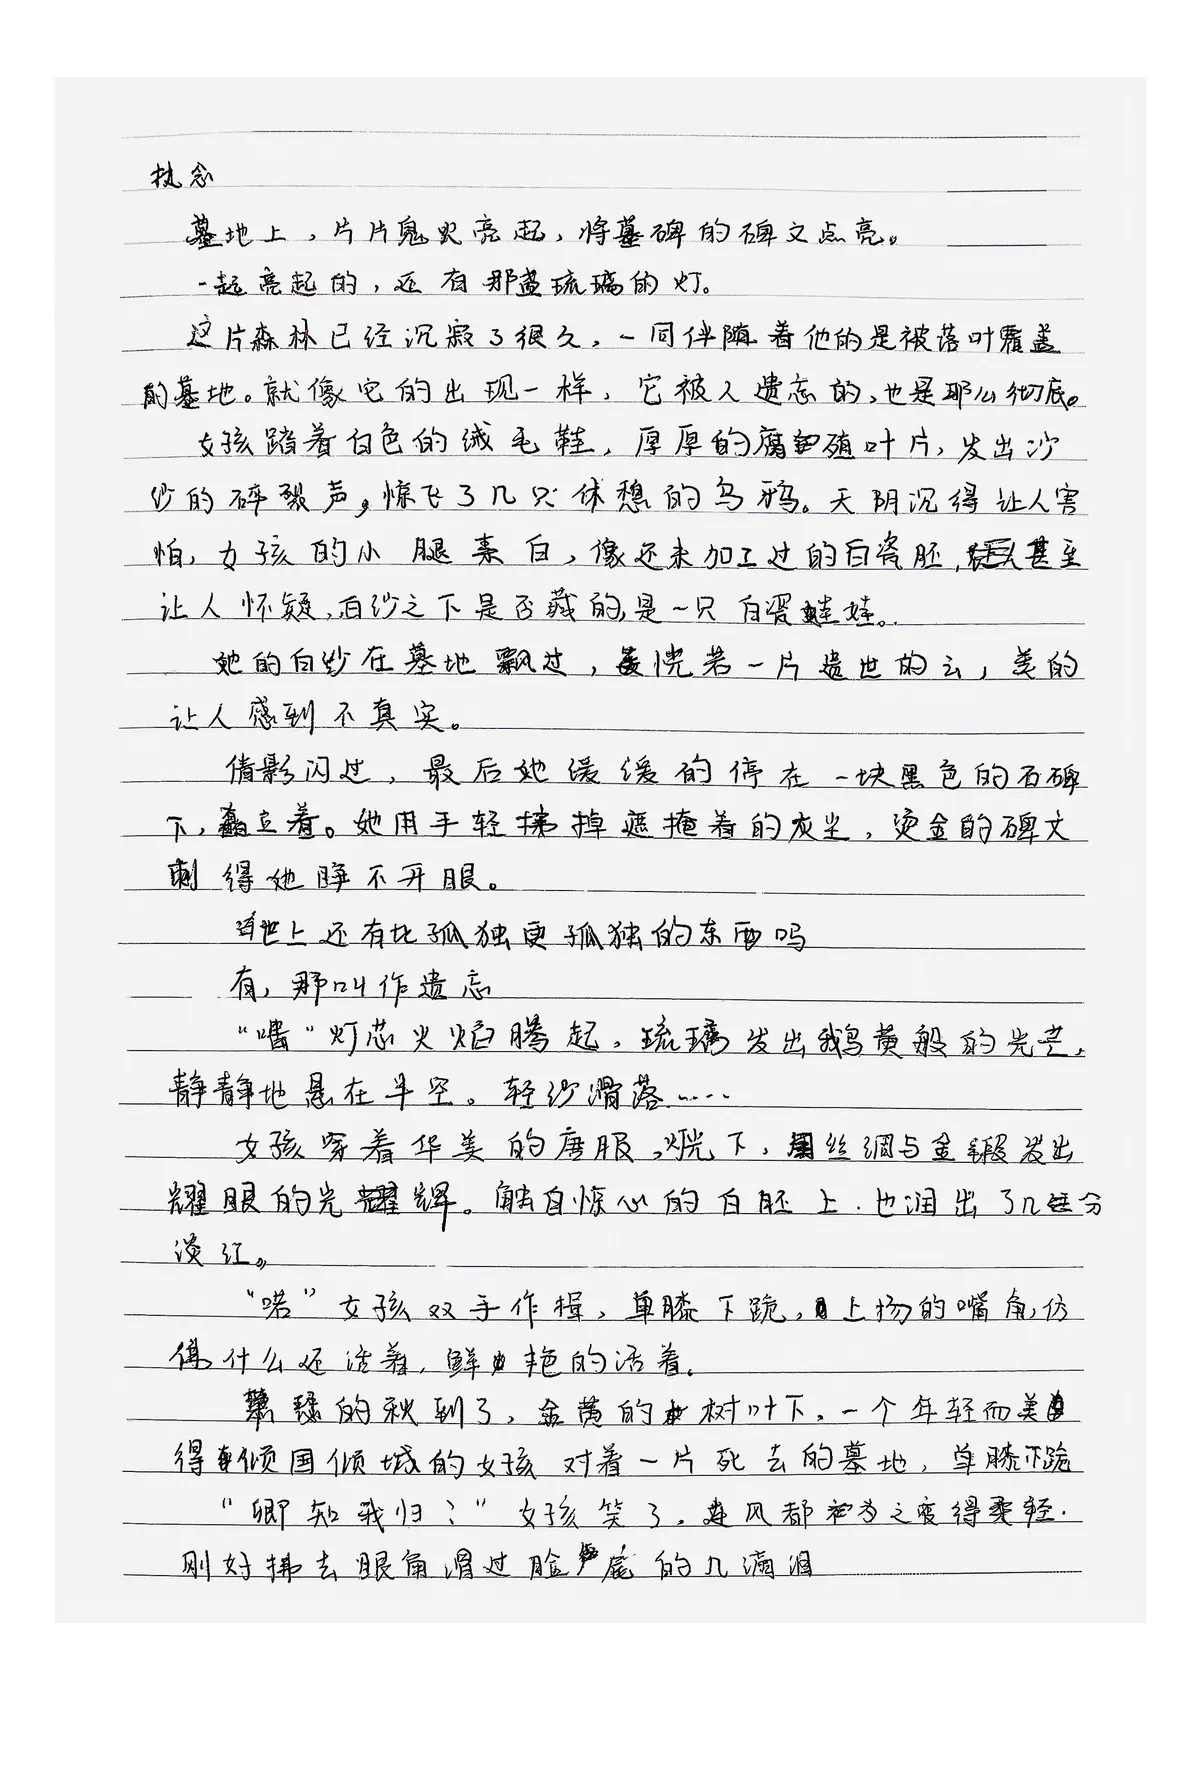 执念
墓地上，片片鬼火亮起，将墓碑的碑文点亮。
一起亮起的，还有那盏琉璃的灯。
这片森林已经沉寂了很久，一同伴随着他的是被落叶覆盖
的墓地。就像它的出现一样，它被人遗忘的，也是那么彻底。
女孩踏着白色的绒毛鞋，厚厚的腐殖叶片，发出沙
沙的碎裂声，惊飞了几只休憩的乌鸦。天阴沉得让人害
怕，女孩的小腿素白，像还未加工过的白瓷胚，甚至
让人怀疑，白纱之下是否藏的，是一只白瓷娃娃。
她的白纱在墓地飘过，恍若一片遗世的云，美的
让人感到不真实。
倩影闪过，最后她缓缓的停在一块黑色的石碑
下，立着。她用手轻拂掉遮掩着的灰尘，烫金的碑文
刺得她睁不开眼。
世上还有比孤独更孤独的东西吗
有，那叫作遗忘
“噌”灯芯火焰腾起，琉璃发出鹅黄般的光芒，
静静地悬在半空。轻纱滑落……
女孩穿着华美的唐服，烛光下，丝绸与金缎发出
耀眼的光辉。触目惊心的白胚上，也润出了几分
淡红。
“喏”女孩双手作揖，单膝下跪，上扬的嘴角，仿
佛什么还活着，鲜艳的活着。
的秋到了，金黄的树叶下，一个年轻而美
得倾国倾城的女孩对着一片死去的墓地，单膝下跪
“卿知我归？”女孩笑了，连风都为之变得柔轻.
刚好拂去眼角滑过脸庞的几滴泪